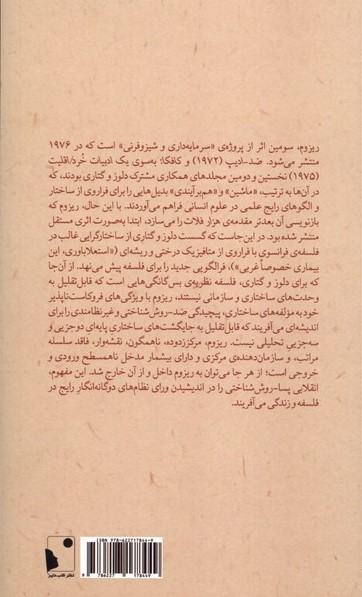 ریزوم، سومین اثر از پروژه‌ی «سرمایه‌داری و شیزوفرنی» است که در ۱۹۷۶
منتشر می‌شود. ضد-ادیپ (۱۹۷۲) و کافکا: به‌سوی یک ادبیات خُرد/اقلیت
(۱۹۷۵) نخستین و دومین مجلدهای همکاری مشترک دلوز و گتاری بودند، که
در آن‌ها به ترتیب، «ماشین» و «هم‌برآیندی» بدیل‌هایی را برای فراروی از ساختار
و الگوهای رایج علمی در علوم انسانی فراهم می‌آوردند. با این حال، ریزوم که
بازنویسی آن بعدتر مقدمه‌ی هزار فلات را می‌سازد، ابتدا به‌صورت اثری مستقل
منتشر شده بود. در این‌جاست که گسست دلوز و گتاری از ساختارگرایی غالب در
فلسفه‌ی فرانسوی با فراروی از متافیزیک درختی و ریشه‌ای («استعلاباوری، این
بیماری خصوصاً غربی»)، فراالگویی جدید را برای فلسفه پیش می‌نهد. از آن‌جا
که برای دلوز و گتاری، فلسفه نظریه‌ی بس‌گانگی‌هایی است که قابل‌تقلیل به
وحدت‌های ساختاری و سازمانی نیستند، ریزوم با ویژگی‌های فروکاست‌ناپذیر
خود به مؤلفه‌های ساختاری، پیچیدگی ضد-روش‌شناختی و غیرنظامندی را برای
اندیشه‌ای می‌آفریند که قابل‌تقلیل به جایگشت‌های ساختاری پایه‌ای دوجزیی و
سه‌جزیی تحلیلی نیست. ریزوم، مرکززدوده، ناهمگون، نقشه‌وار، فاقد سلسله
مراتب، و سازمان‌دهنده‌ی مرکزی و دارای بیشمار مدخل ناهمسطح ورودی و
خروجی است؛ از هر جا می‌توان به ریزوم داخل و از آن خارج شد. این مفهوم،
انقلابی پسا-روش‌شناختی را در اندیشیدن ورای نظام‌های دوگانه‌انگار رایج در
فلسفه و زندگی می‌آفریند.
ISBN 978-622717844-9
9 786227 178449